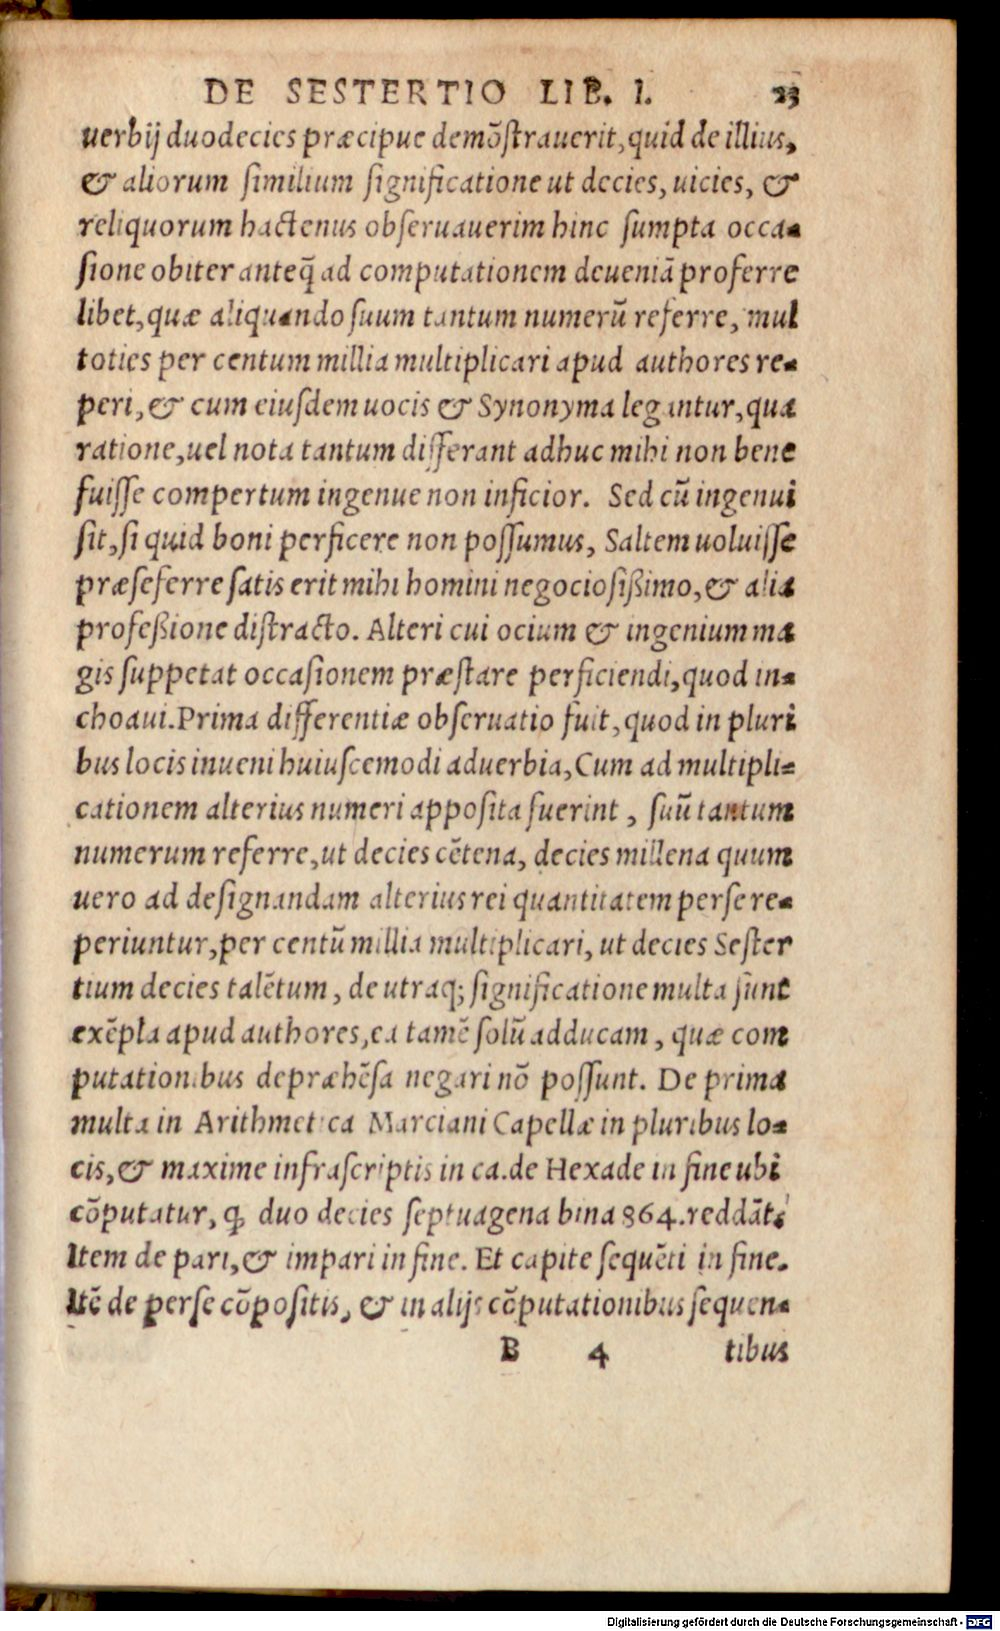 DE SESTERTIO LIB. I. 23
uerbij duodecies præcipue demōſtrauerit, quid de illius,
& aliorum ſimilium ſignificatione ut decies, uicies, &
reliquorum hactenus obſeruauerim hinc ſumpta occa-
ſione obiter anteq̄ ad computationem deueniā proferre
libet, quæ aliquando ſuum tantum numerū referre, mul
toties per centum millia multiplicari apud authores re-
peri, & cum eiuſdem uocis & Synonyma legantur, qua
ratione, uel nota tantum differant adhuc mihi non bene
fuiſſe compertum ingenue non inficior. Sed cū ingenui
ſit, ſi quid boni perficere non poſſumus, Saltem uoluiſſe
præſeferre ſatis erit mihi homini negocioſißimo, & alia
profeßione diſtracto. Alteri cui ocium & ingenium ma
gis ſuppetat occaſionem præſtare perficiendi, quod in-
choaui. Prima differentiæ obſeruatio fuit, quod in pluri
bus locis inueni huiuſcemodi aduerbia, Cum ad multipli-
cationem alterius numeri appoſita fuerint, ſuū tantum
numerum referre, ut decies cētena, decies millena quum
uero ad deſignandam alterius rei quantitatem per ſe re-
periuntur, per centū millia multiplicari, ut decies Seſter
tium decies talētum, de utraq; ſignificatione multa ſunt
exēpla apud authores, ea tamē ſolū adducam, quæ com
putationibus depræhēſa negari nō poſſunt. De prima
multa in Arithmetica Marciani Capellæ in pluribus lo-
cis, & maxime infraſcriptis in ca. de Hexade in fine ubi
cōputatur, ꝙ duo decies ſeptuagena bina 864. reddāt.
Item de pari, & impari in fine. Et capite ſequēti in fine.
Itē de perſe cōpoſitis, & in alijs cōputationibus ſequen-
B 4 tibus
Digitalisierung gefördert durch die Deutsche Forschungsgemeinschaft - DFG